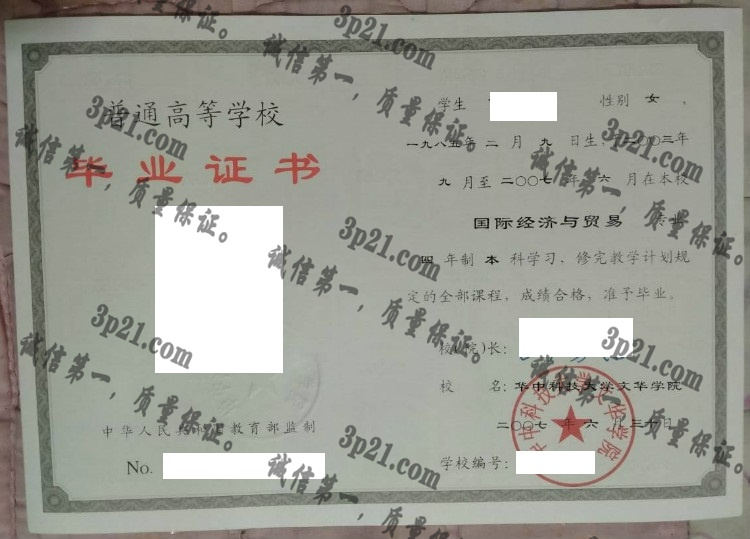 普通高等学校
毕业证书
中华人民共和国教育部监制
No.
学生 性别 女 ，
一九八五年 二 月 九 日生，于二〇〇三年
九 月至 二〇〇七 年 六 月在本校
国际经济与贸易 专业
四 年制 本 科学习，修完教学计划规
定的全部课程，成绩合格，准予毕业。
校(院)长:
校 名: 华中科技大学文华学院
二〇〇七 年 六 月三十日
学校编号:
华中科技大学文华学院
3p21.com
诚信第一，质量保证。
3p21.com
诚信第一，质量保证。
3p21.com
诚信第一，质量保证。
3p21.com
诚信第一，质量保证。
3p21.com
诚信第一，质量保证。
3p21.com
诚信第一，质量保证。
3p21.com
诚信第一，质量保证。
3p21.com
诚信第一，质量保证。